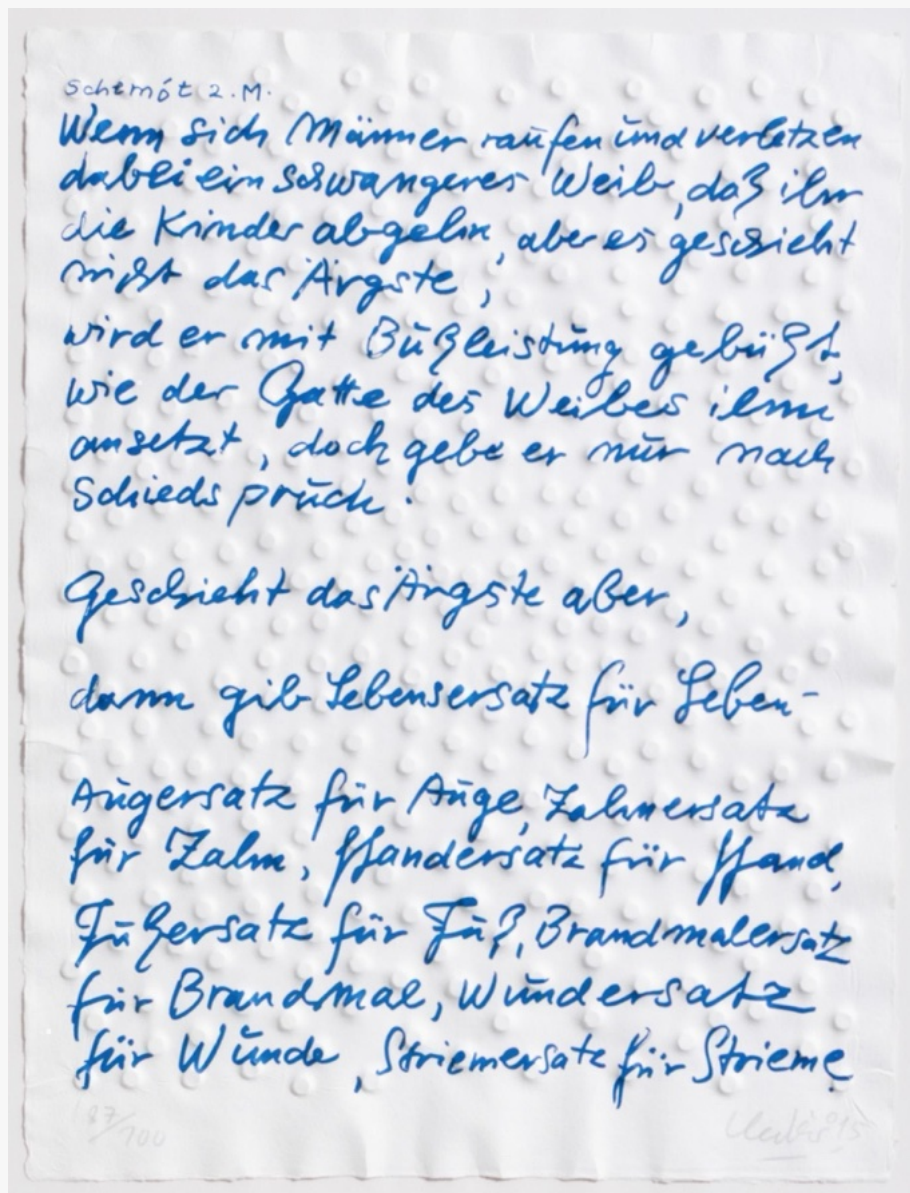 Schemót 2.M.
Wenn sich Männer raufen und verletzen
dabei ein schwangeres Weib, daß ihr
die Kinder abgehn, aber es geschieht
nicht das Ärgste,
wird er mit Büßleistung gebüßt,
wie der Gatte des Weibes ihm
ansetzt, doch gebe er nur nach
Schiedspruch.
Geschieht das Ärgste aber,
dann gib Lebensersatz für Leben-
Augersatz für Auge, Zahnersatz
für Zahn, Handersatz für Hand,
Fußersatz für Fuß, Brandmalersatz
für Brandmal, Wundersatz
für Wunde, Striemersatz für Strieme.
87/100